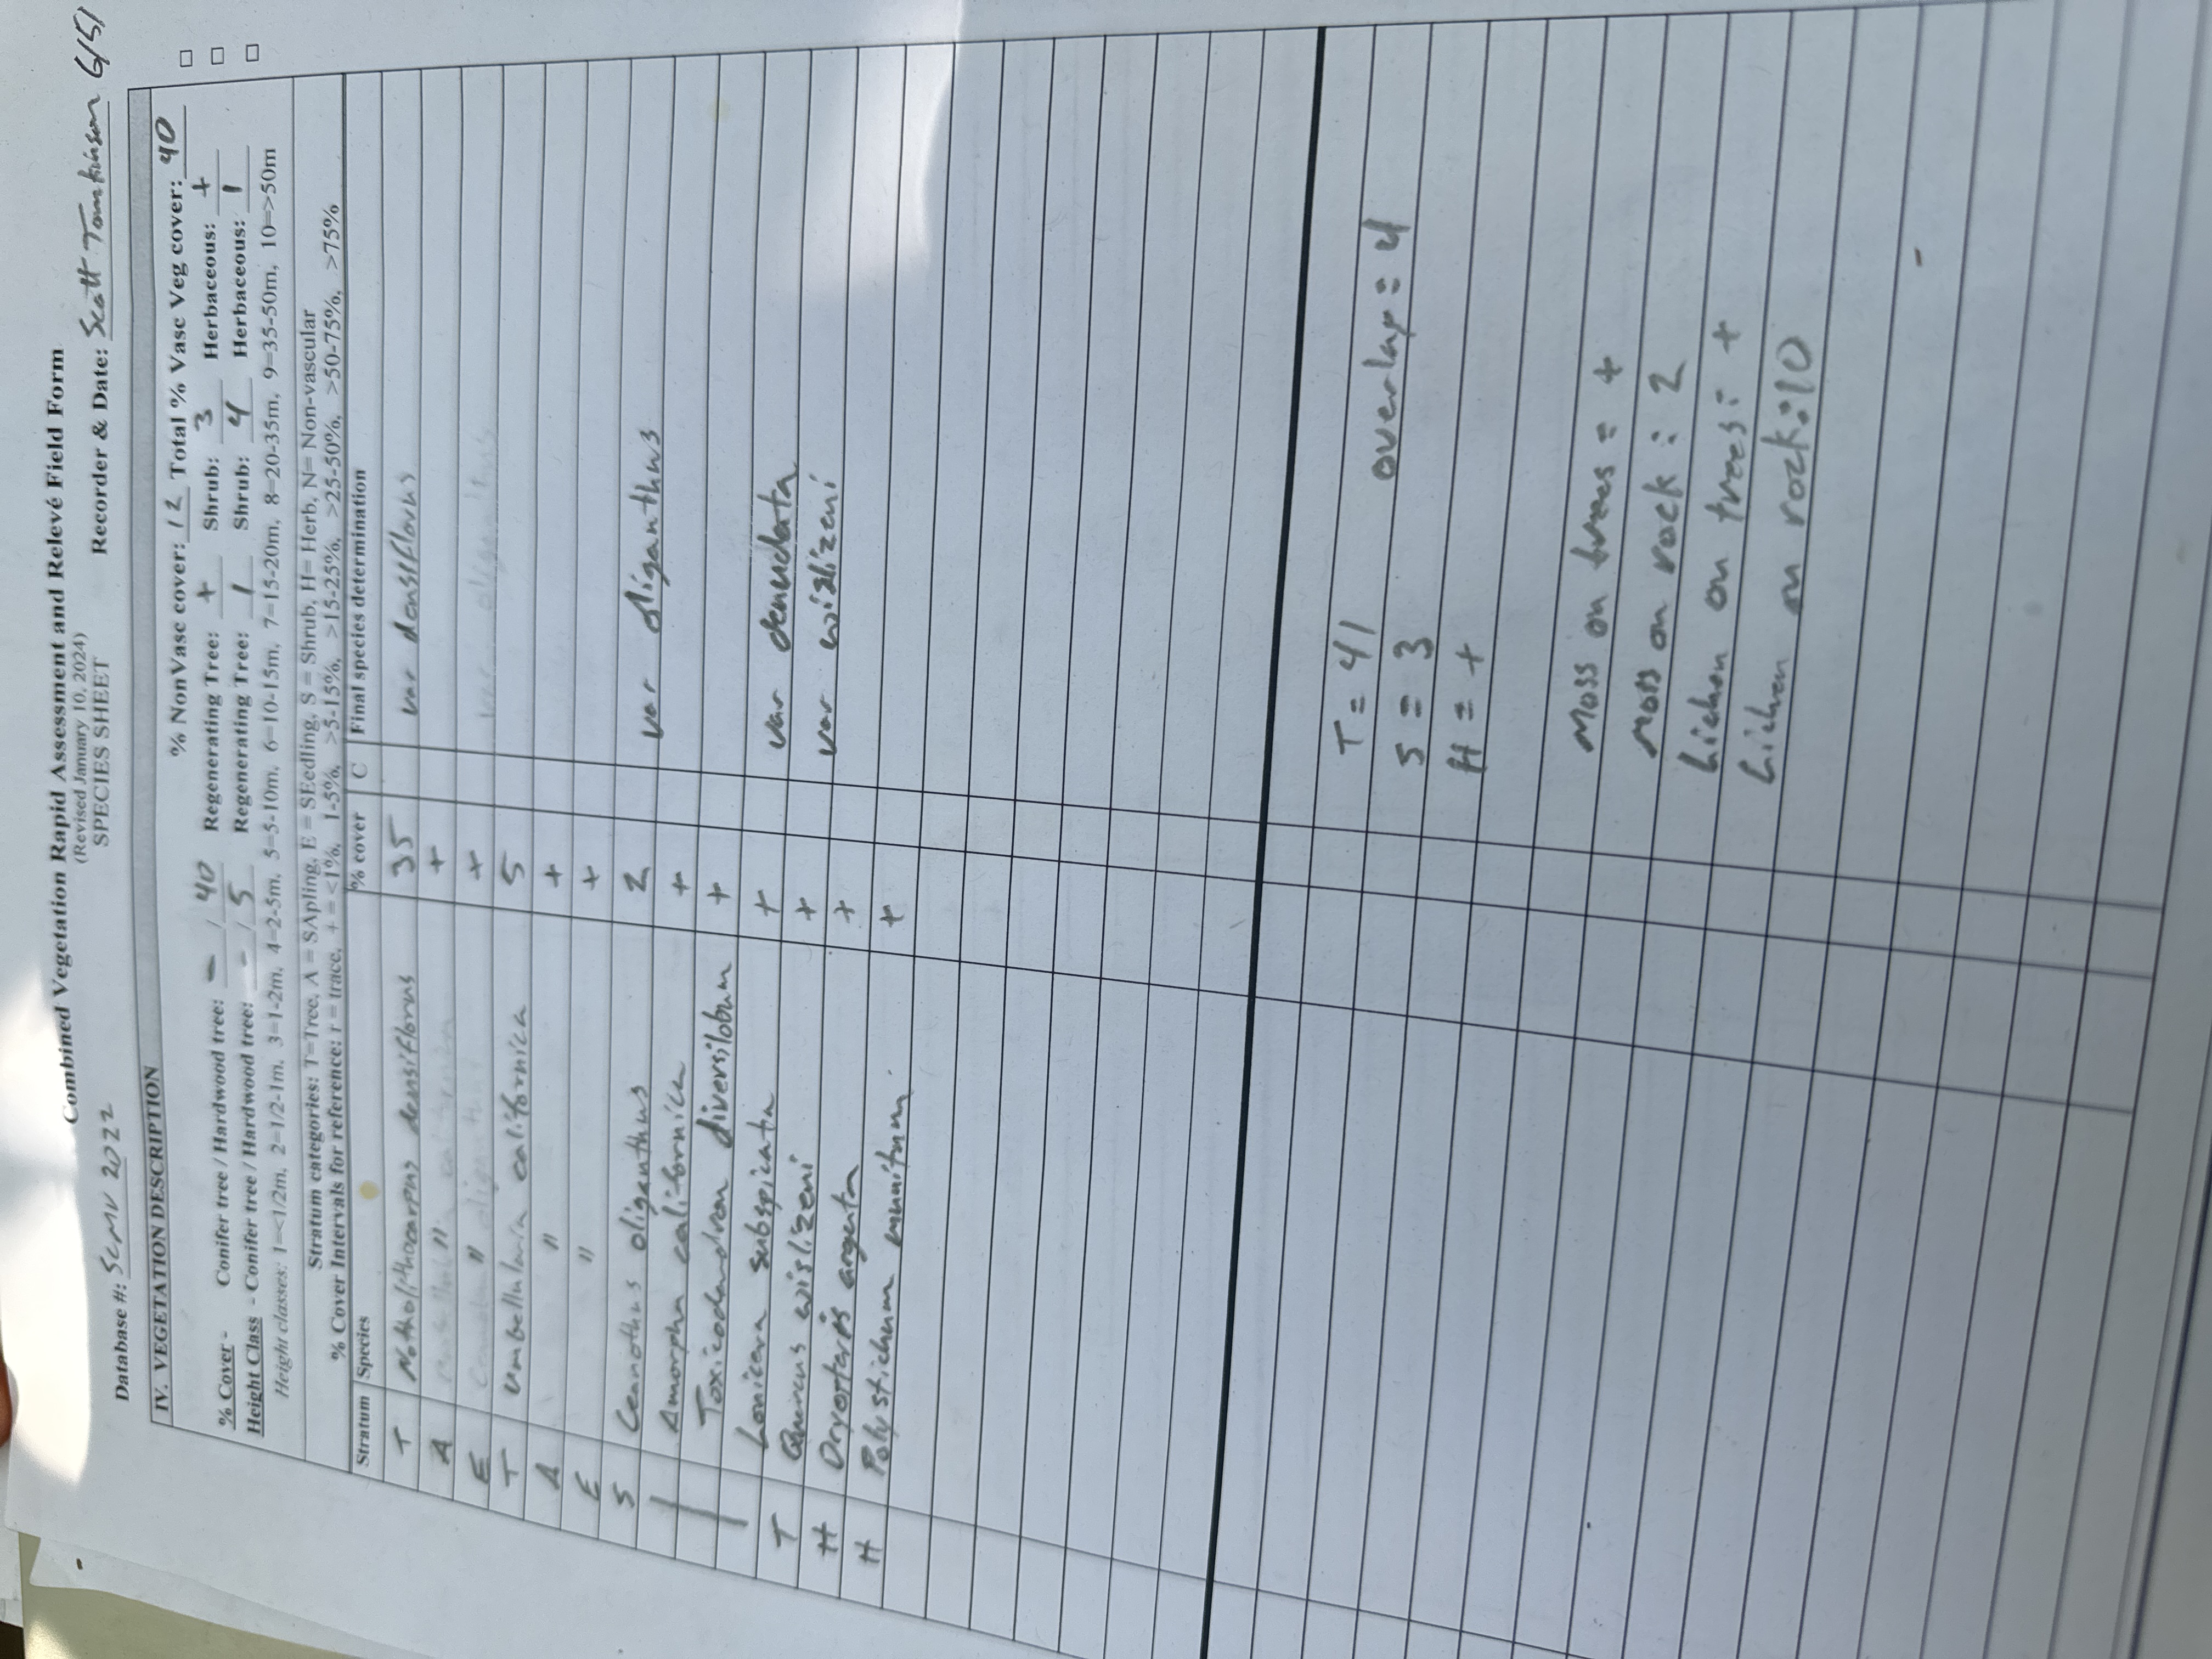 Combined Vegetation Rapid Assessment and Relevé Field Form
(Revised January 10, 2024)
SPECIES SHEET
Database #: SCMV 2022 Recorder & Date: Scott Tomkinson 6/5/
IV. VEGETATION DESCRIPTION
% NonVasc cover: 12 Total % Vasc Veg cover: 40
% Cover - Conifer tree / Hardwood tree: - / 40 Regenerating Tree: + Shrub: 3 Herbaceous: +
Height Class - Conifer tree / Hardwood tree: - / 5 Regenerating Tree: 1 Shrub: 4 Herbaceous: 1
Height classes: 1=<1/2m, 2=1/2-1m, 3=1-2m, 4=2-5m, 5=5-10m, 6=10-15m, 7=15-20m, 8=20-35m, 9=35-50m, 10=>50m
Stratum categories: T=Tree, A = SApling, E = SEedling, S = Shrub, H= Herb, N= Non-vascular
% Cover Intervals for reference: r = trace, + = <1%, 1-5%, >5-15%, >15-25%, >25-50%, >50-75%, >75%
Stratum Species % cover C Final species determination
T Notholithocarpus densiflorus 35 var densiflorus
A " +
E " +
T Umbellularia californica 5
A " +
E " +
S Ceanothus oliganthus 2 var oliganthus
Amorpha californica +
Toxicodendron diversilobum +
Lonicera subspicata + var denudata
T Quercus wislizeni + var wislizeni
H Dryopteris arguta +
H Polystichum munitum +
T = 41
S = 3 overlap = 4
H = +
Moss on trees = +
Moss on rock : 2
Lichen on trees : +
Lichen on rock : 10